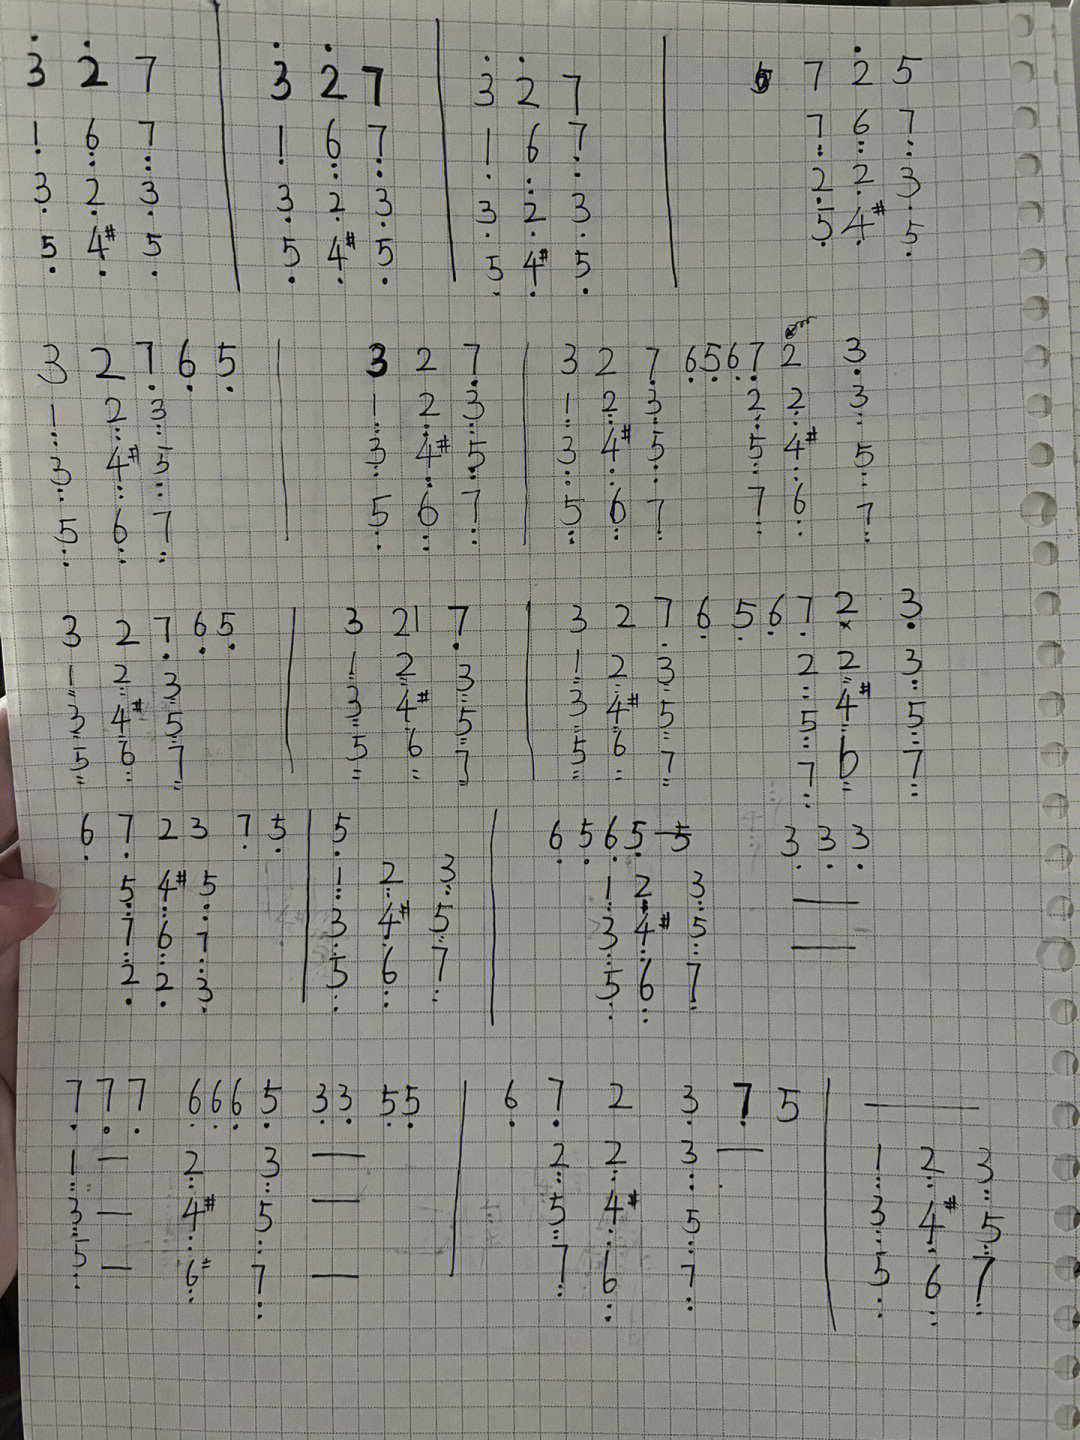 3̇ 2̇ 7 | 3̇ 2̇ 7 | 3̇ 2̇ 7 | 7 2̇ 5
1 6 7 | 1 6 7 | 1 6 7 | 7 6 7
3 2 3 | 3 2 3 | 3 2 3 | 2 2 3
5 4# 5 | 5 4# 5 | 5 4# 5 | 5 4# 5
3 2 7 6 5 | 3 2 7 | 3 2 7 6 5 6 7 2 3
1 2 3 | 1 2 3 | 1 2 3 2 2 3
3 4# 5 | 3 4# 5 | 3 4# 5 5 4# 5
5 6 7 | 5 6 7 | 5 6 7 7 6 7
3 2 7 6 5 | 3 21 7 | 3 2 7 6 5 6 7 2 3
1 2 3 | 1 2 3 | 1 2 3 2 2 3
3 4# 5 | 3 4# 5 | 3 4# 5 5 4# 5
5 6 7 | 5 6 7 | 5 6 7 7 6 7
6 7 2 3 7 5 | 5 | 6 5 6 5 — 5 3 3 3
5 4# 5 | 1 2 3 | 1 2 3 —
7 6 7 | 3 4# 5 | 3 4# 5 —
2 2 3 | 5 6 7 | 5 6 7
7 7 7 6 6 6 5 3 3 5 5 | 6 7 2 3 7 5 | —
1 — 2 3 — | 2 2 3 — | 1 2 3
3 — 4# 5 — | 5 4# 5 | 3 4# 5
5 — 6 7 — | 7 6 7 | 5 6 7